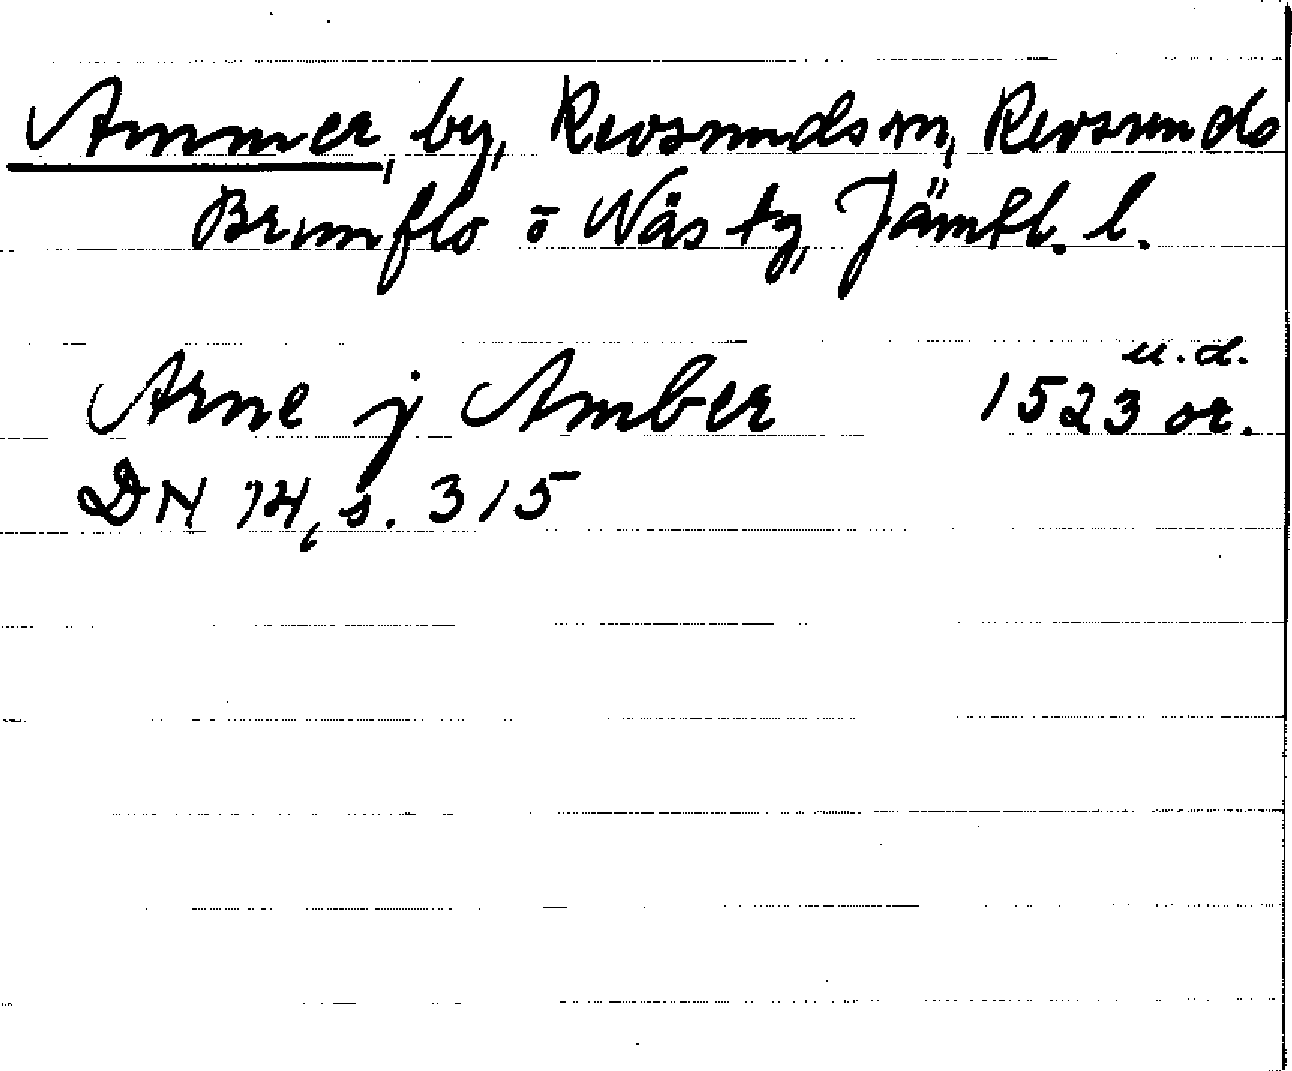 Ammer, by, Revsunds sn, Revsunds
Brunflo o Näs tg, Jämtl. l.
Arne j Amber 1523 u.d. or.
DN 14, s. 315